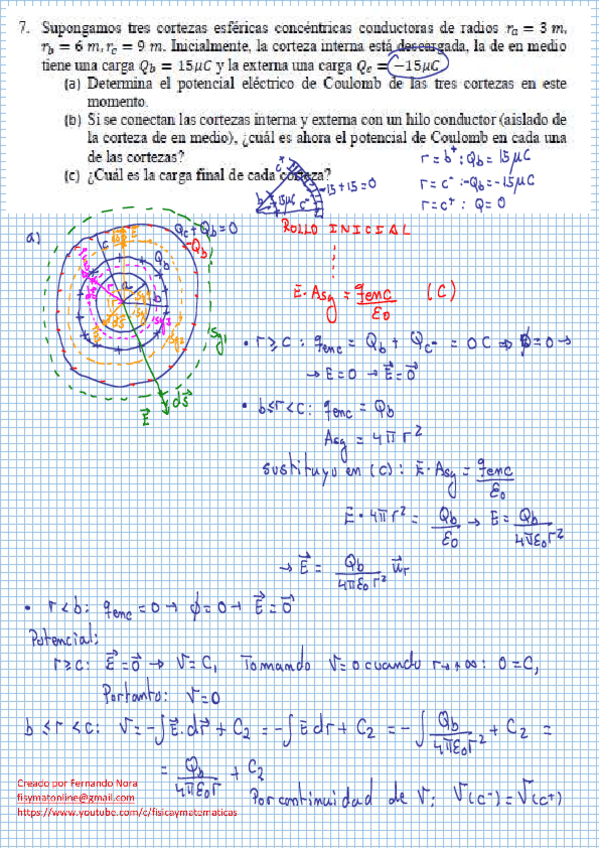 7. Supongamos tres cortezas esféricas concéntricas conductoras de radios r_a = 3 m,
r_b = 6 m, r_c = 9 m. Inicialmente, la corteza interna está descargada, la de en medio
tiene una carga Q_b = 15μC y la externa una carga Q_c = −15μC
(a) Determina el potencial eléctrico de Coulomb de las tres cortezas en este
momento.
(b) Si se conectan las cortezas interna y externa con un hilo conductor (aislado de
la corteza de en medio), ¿cuál es ahora el potencial de Coulomb en cada una
de las cortezas?
(c) ¿Cuál es la carga final de cada corteza?
r = b⁺ : Q_b = 15 μC
r = c⁻ : -Q_b = -15 μC
r = c⁺ : Q = 0
-15+15=0
15μC
a)
Q_c + Q_b = 0
-Q_b
Q_b
Sg1
E⃗ dS⃗
ROLLO INICIAL
E·A_sg = q_enc/ε₀ (C)
• r ≥ c : q_enc = Q_b + Q_c⁻ = 0 C ⇒ ϕ = 0 →
→ E = 0 → E⃗ = 0⃗
• b ≤ r < c : q_enc = Q_b
A_sg = 4π r²
sustituyo en (C) : E·A_sg = q_enc/ε₀
E · 4π r² = Q_b/ε₀ → E = Q_b/4πε₀r²
→ E⃗ = Q_b/4πε₀r² u⃗_r
• r < b : q_enc = 0 → ϕ = 0 → E⃗ = 0⃗
Potencial:
r ≥ c : E⃗ = 0⃗ → V = C₁ Tomando V = 0 cuando r → +∞ : 0 = C₁
Por tanto: V = 0
b ≤ r < c : V = -∫E⃗·dr⃗ + C₂ = -∫E dr + C₂ = -∫ Q_b/4πε₀r² + C₂ =
= Q_b/4πε₀r + C₂
Por continuidad de V: V(c⁻) = V(c⁺)
Creado por Fernando Nora
fisymatonline@gmail.com
https://www.youtube.com/c/fisicaymatematicas